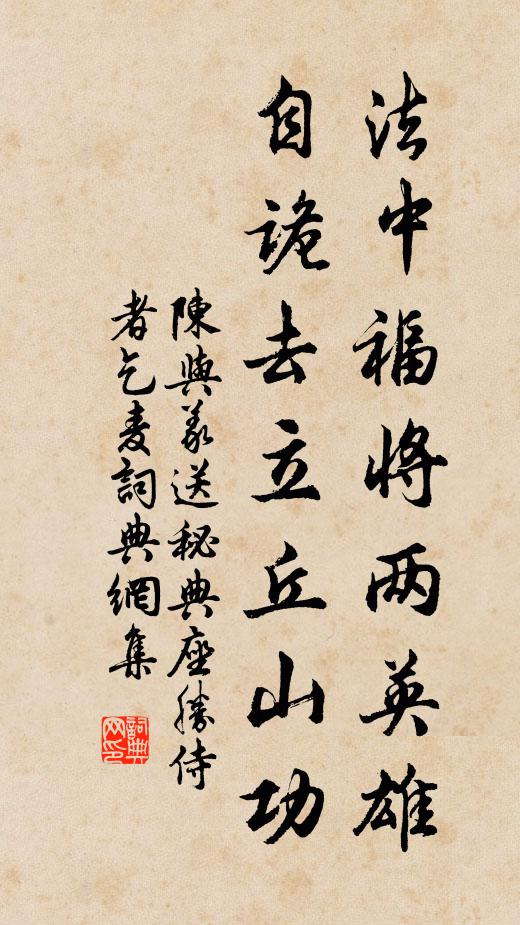 法中福将两英雄
自詭去立丘山功
陳與義送秘典座勝侍
者乞麦詞典網集
詞典网印